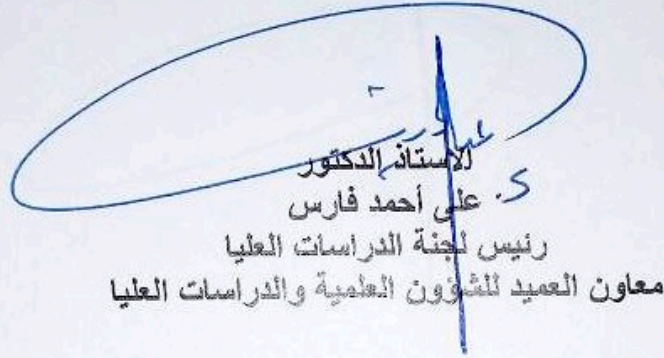 الأستاذ الدكتور
د. علي أحمد فارس
رئيس لجنة الدراسات العليا
معاون العميد للشؤون العلمية والدراسات العليا